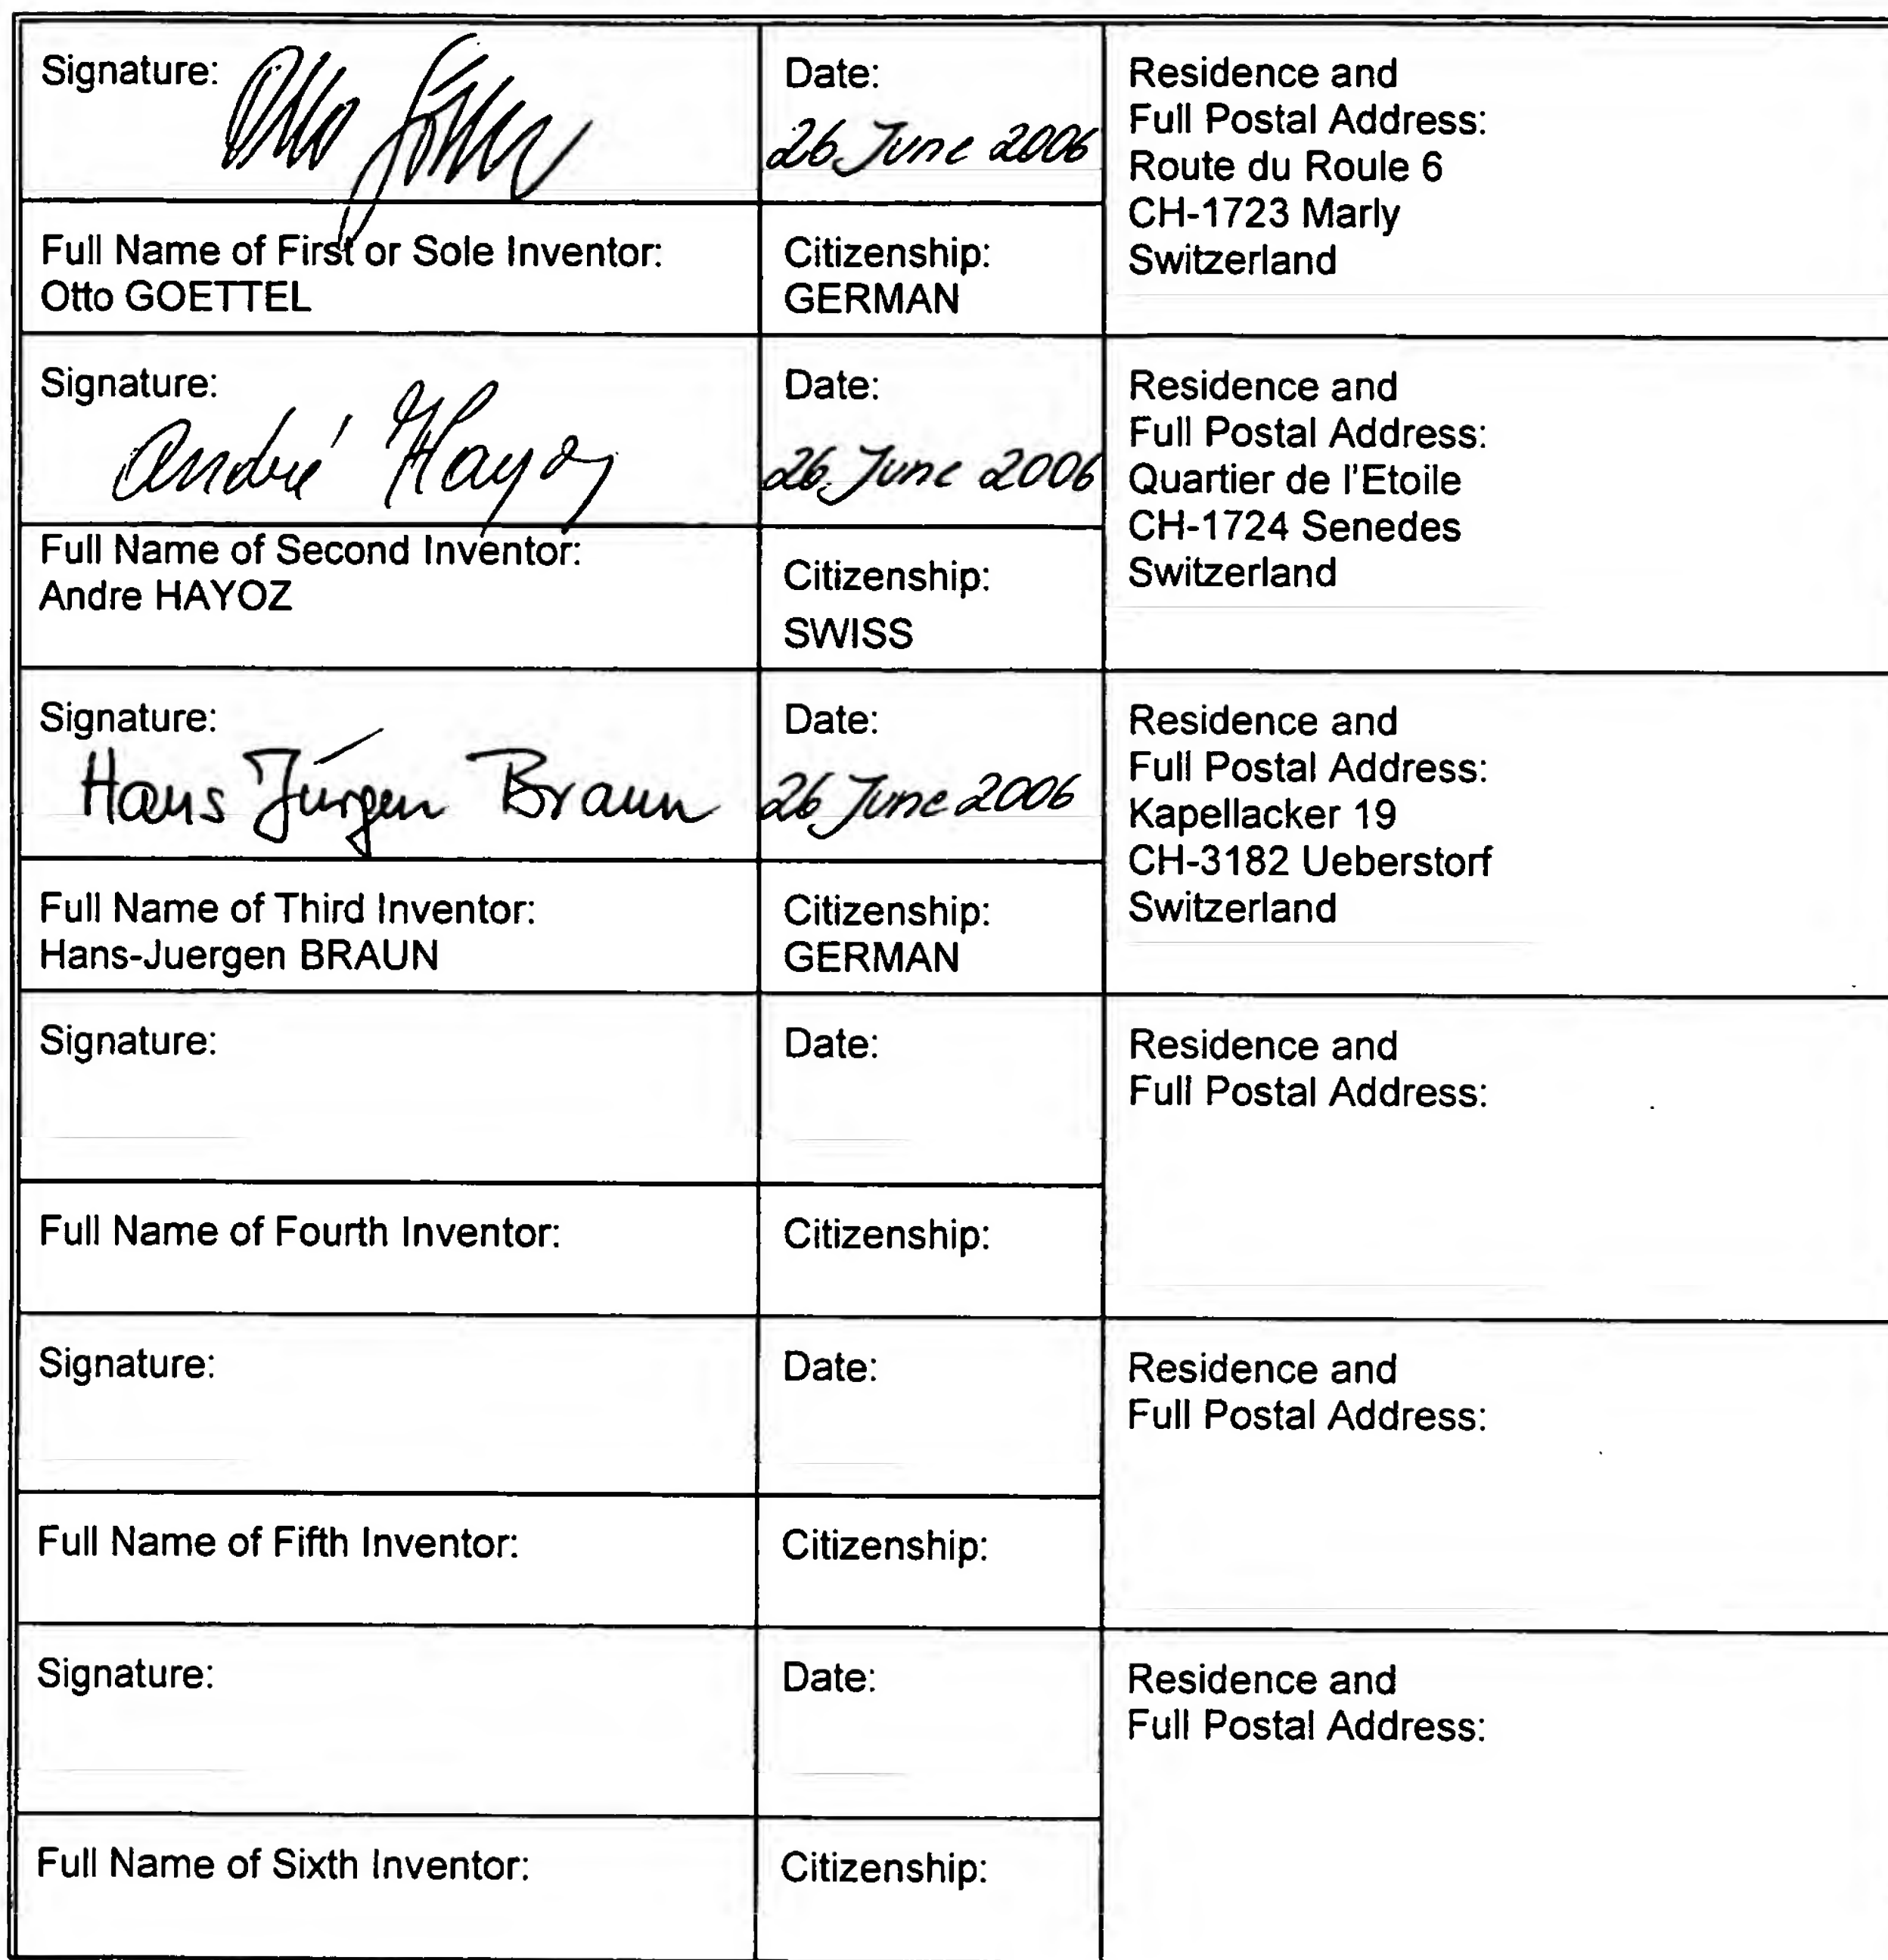 Signature: Otto Göttel
Date:
26. June 2006
Residence and
Full Postal Address:
Route du Roule 6
CH-1723 Marly
Switzerland
Full Name of First or Sole Inventor:
Otto GOETTEL
Citizenship:
GERMAN
Signature:
André Hayoz
Date:
26. June 2006
Residence and
Full Postal Address:
Quartier de l'Etoile
CH-1724 Senedes
Switzerland
Full Name of Second Inventor:
Andre HAYOZ
Citizenship:
SWISS
Signature:
Hans Jürgen Braun
Date:
26 June 2006
Residence and
Full Postal Address:
Kapellacker 19
CH-3182 Ueberstorf
Switzerland
Full Name of Third Inventor:
Hans-Juergen BRAUN
Citizenship:
GERMAN
Signature:
Date:
Residence and
Full Postal Address:
Full Name of Fourth Inventor:
Citizenship:
Signature:
Date:
Residence and
Full Postal Address:
Full Name of Fifth Inventor:
Citizenship:
Signature:
Date:
Residence and
Full Postal Address:
Full Name of Sixth Inventor:
Citizenship: